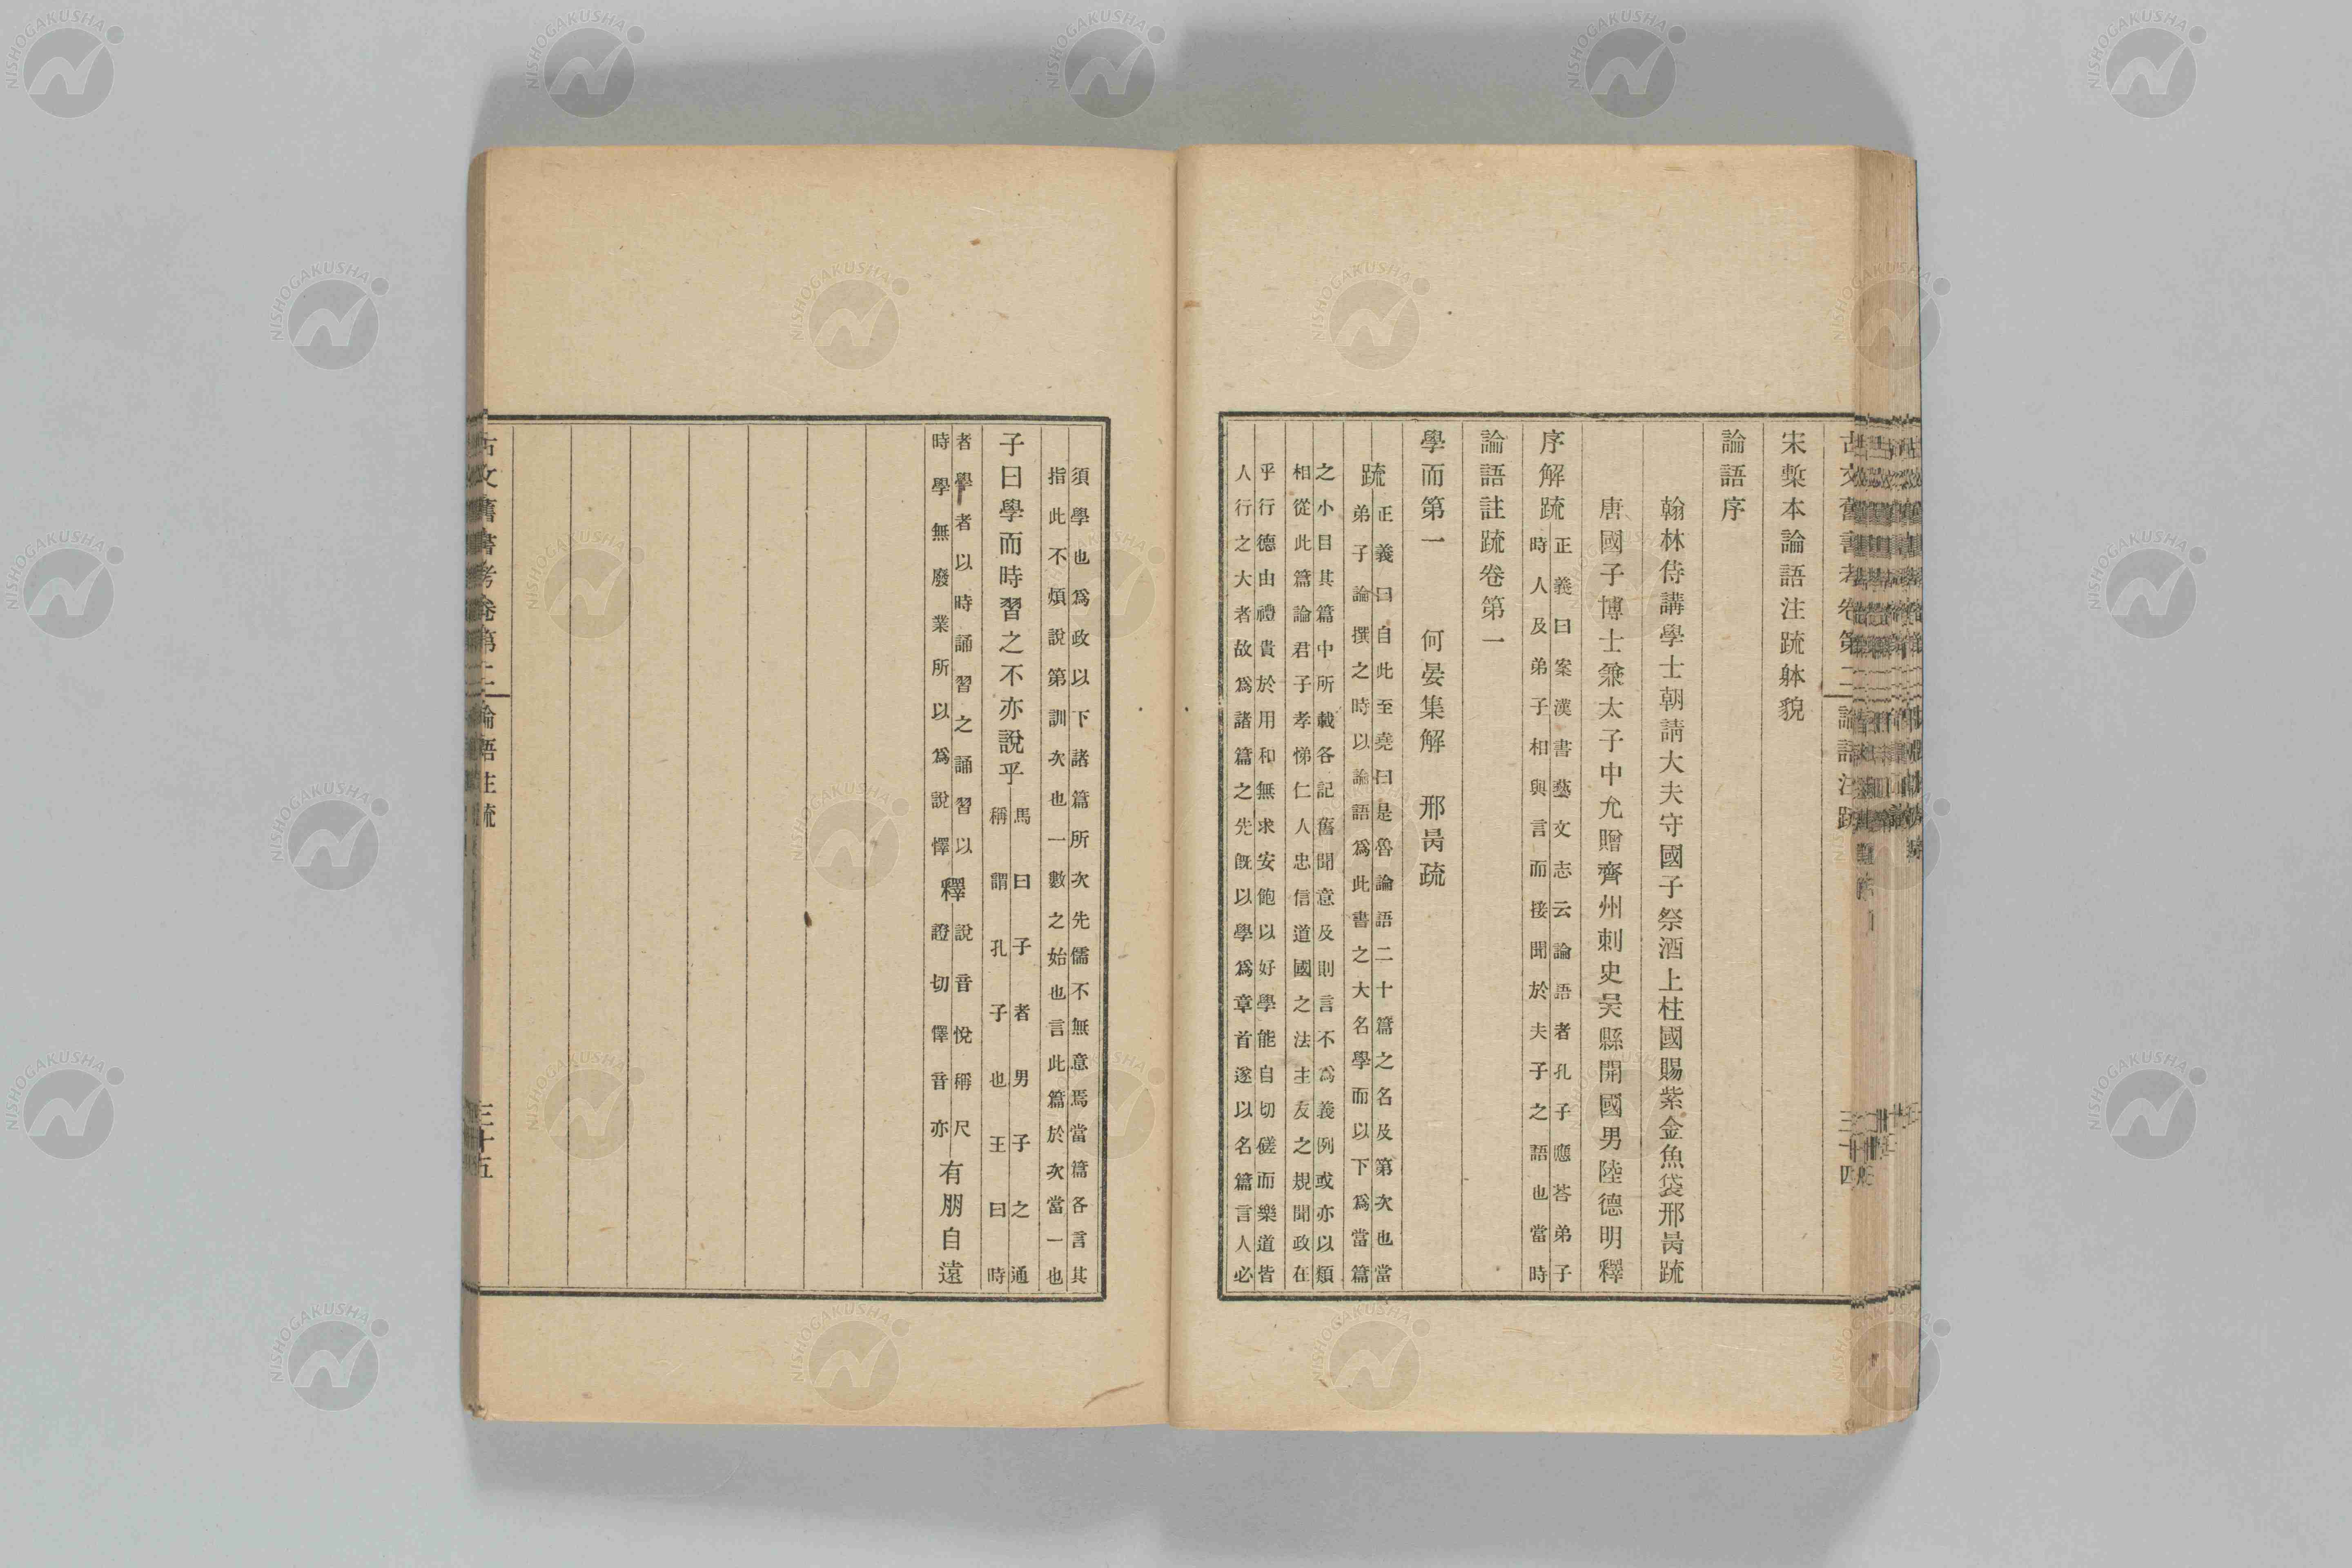 古文舊書考卷第二 論語注疏 三十四
宋槧本論語注疏躰貌
論語序
翰林侍講學士朝請大夫守國子祭酒上柱國賜紫金魚袋邢昺疏
唐國子博士兼太子中允贈齊州刺史吳縣開國男陸德明釋
序解疏
正義曰案漢書藝文志云論語者孔子應荅弟子
時人及弟子相與言而接聞於夫子之語也當時
論語註疏卷第一
學而第一 何晏集解 邢昺疏
疏
正義曰自此至堯曰是魯論語二十篇之名及第次也當
弟子論撰之時以論語爲此書之大名學而以下爲當篇
之小目其篇中所載各記舊聞意及則言不爲義例或亦以類
相從此篇論君子孝悌仁人忠信道國之法主友之規聞政在
乎行德由禮貴於用和無求安飽以好學能自切磋而樂道皆
人行之大者故爲諸篇之先旣以學爲章首遂以名篇言人必
須學也爲政以下諸篇所次先儒不無意焉當篇各言其
指此不煩說第訓次也一數之始也言此篇於次當一也
子曰學而時習之不亦說乎
馬曰子者男子之通
稱謂孔子也王曰時
者學者以時誦習之誦習以
時學無廢業所以爲說懌
釋
說音悅稱尺
證切懌音亦
有朋自遠
古文舊書考卷第二 論語注疏 三十五
NISHOGAKUSHA